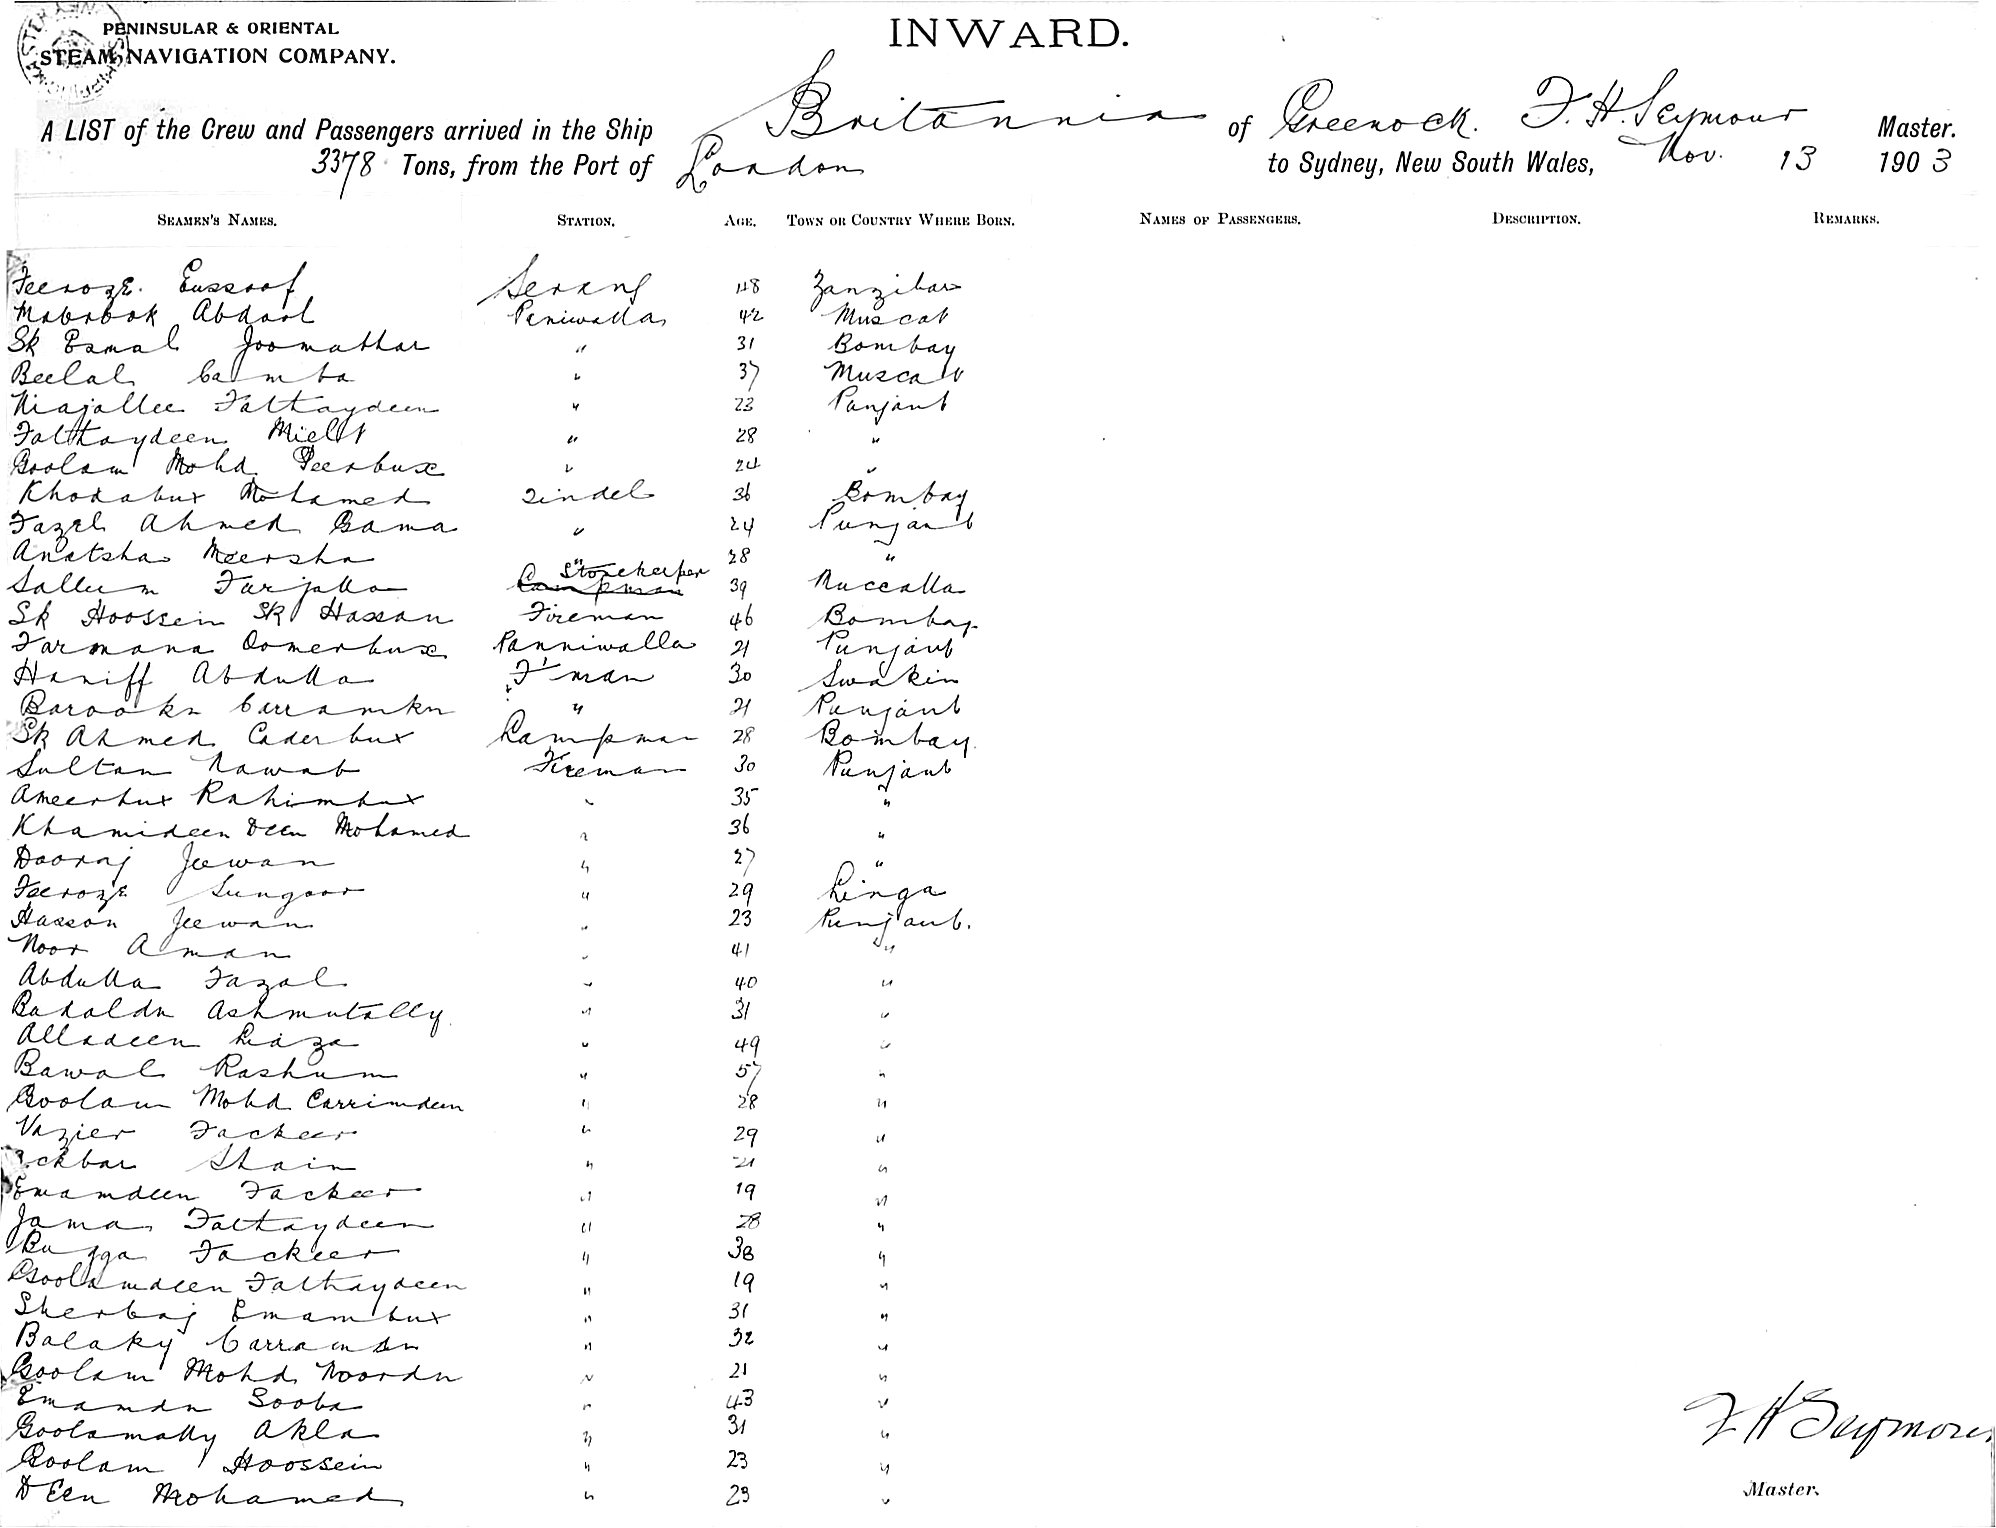 PENINSULAR & ORIENTAL
STEAM NAVIGATION COMPANY.
INWARD.
A LIST of the Crew and Passengers arrived in the Ship Britannia of Greenock. F. H. Seymour Master.
3378 Tons, from the Port of London to Sydney, New South Wales, Nov. 13 1903
SEAMEN'S NAMES. STATION. AGE. TOWN OR COUNTRY WHERE BORN. NAMES OF PASSENGERS. DESCRIPTION. REMARKS.
Feeroze Eussoof Serang 48 Zanzibar
Mabrook Abdool Paniwalla 42 Muscat
Sk Esmal Joomathar " 31 Bombay
Beelal Camba " 37 Muscat
Niajallee Fathaydeen " 23 Punjaub
Fathaydeen " 28 "
Goolam Mohd Peerbux " 24 "
Khodabux Mohamed Tindel 36 Bombay
Fazel Ahmed Gama " 24 Punjaub
Anatsha Meersha " 28 "
Sallum Farjalla Lampman Storekeeper 39 Muccalla
Sk Hoossein Sk Hassan Fireman 46 Bombay
Farmana Oomerbux Panniwalla 21 Punjaub
Haniff Abdulla F'man 30 Swakin
Barookn Carramkn " 21 Punjaub
Sk Ahmed Caderbux Lampman 28 Bombay
Sultan Nawab Fireman 30 Punjaub
Ameerbux Rahimbux " 35 "
Khamideen Deen Mohamed " 36 "
Dooraj Jeewan " 27 "
Feeroze Sungoor " 29 Linga
Hasson Jeewan " 23 Punjaub.
Noor Aman " 41 "
Abdulla Fazal " 40 "
Badaldn Ashmutally " 31 "
Alladeen " 49 "
Bawal Rashum " 57 "
Goolam Mohd Carrimdeen " 28 "
Vazier Fackeer " 29 "
Ackbar Shain " 21 "
Emamdeen Fackeer " 19 "
Jama Fathaydeen " 28 "
Bugga Fackeer " 38 "
Goolamdeen Fathaydeen " 19 "
Sherbaj Emambux " 31 "
Balaky Carramdn " 32 "
Goolam Mohd Noordn " 21 "
Emamdn Sooba " 43 "
Goolamally Akla " 31 "
Goolam Hoossein " 23 "
Deen Mohamed " 23 "
F H Seymour
Master.